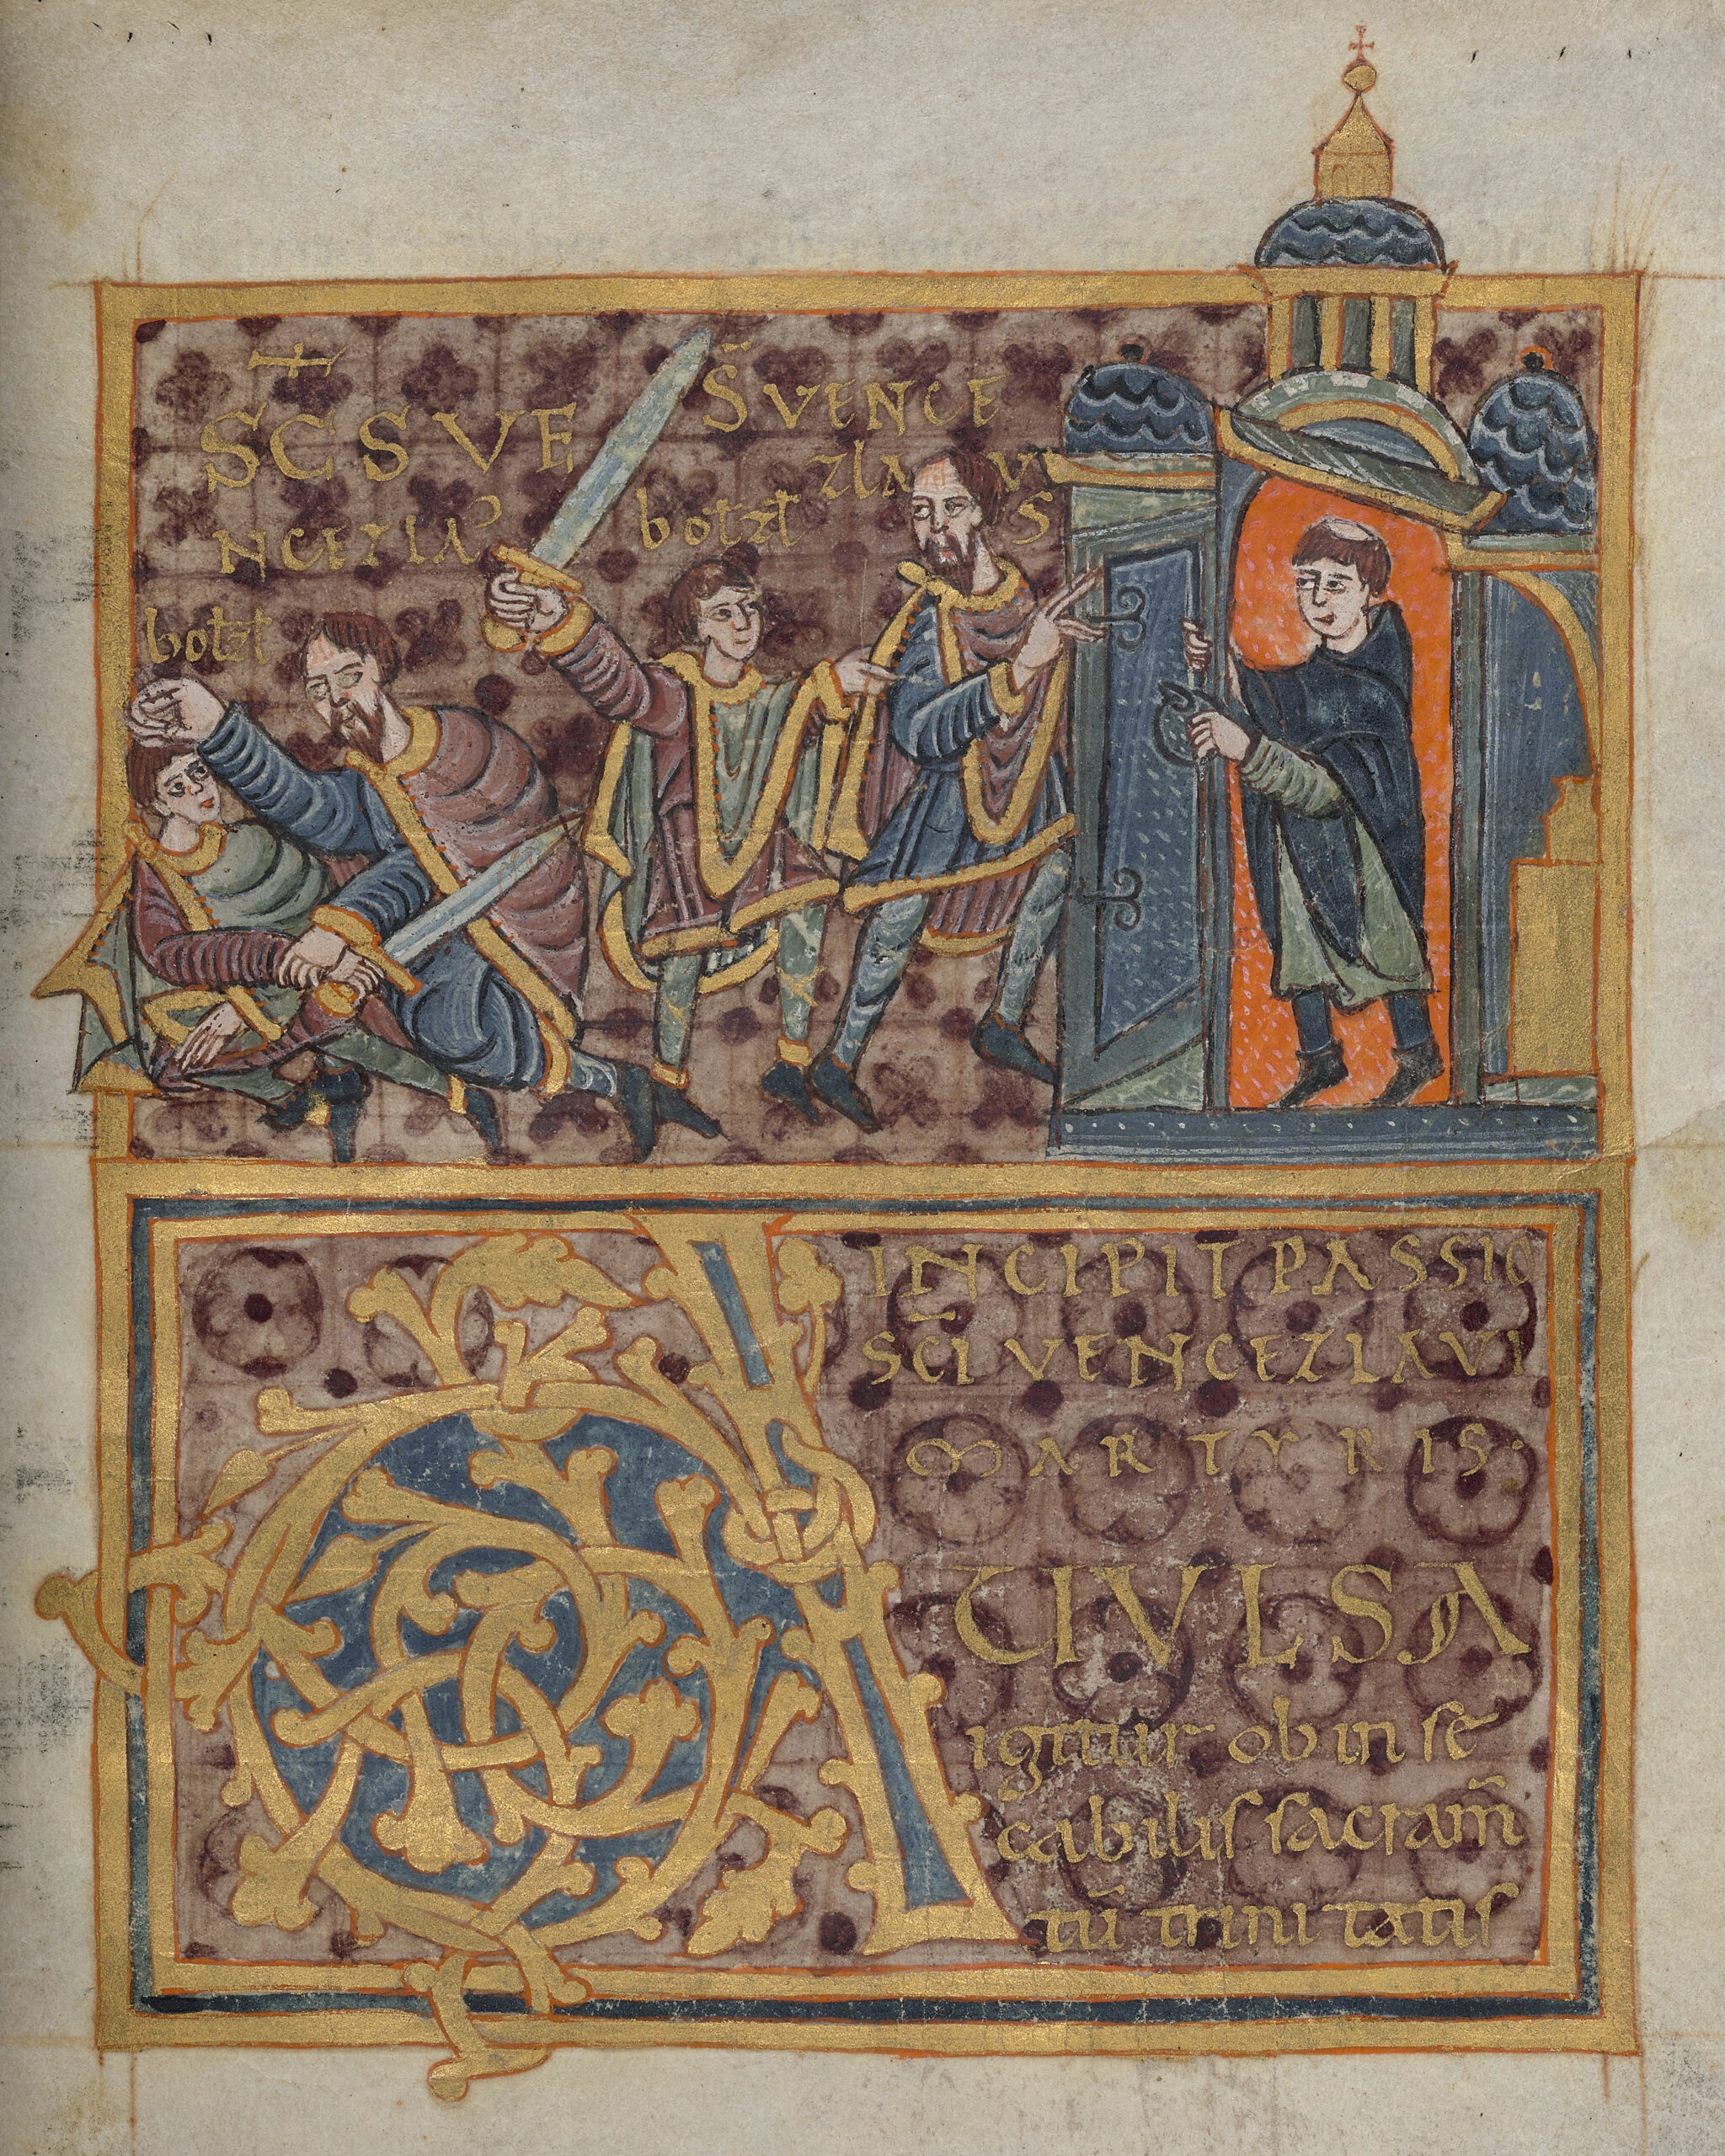 SCS VE
NCEZLAꝰ
botzt
S̄ VENCE
ZLAVS
botzt
INCIPIT PASSIO
SCĪ VENCEZLAVI
MARTYRIS·
A
UIULSA
igitur ob in se
cabilis sacram̄
tū trinitatis